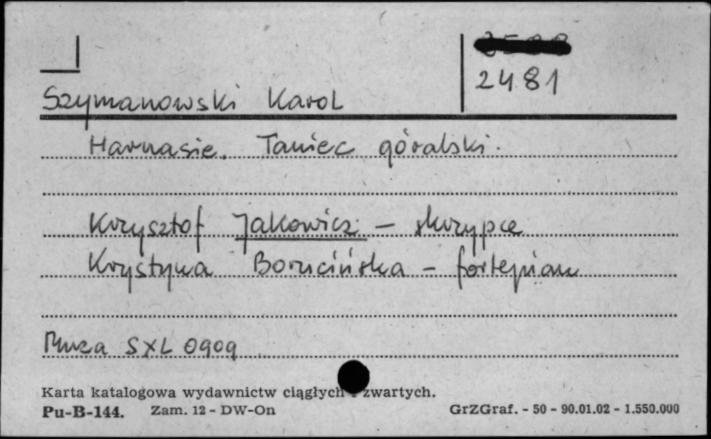 2481
Szymanowski Karol
Harnasie. Taniec góralski.
Krzysztof Jakowicz - skrzypce
Krystyna Borucińska - fortepian
Muza SXL 0909
Karta katalogowa wydawnictw ciągłych i zwartych.
Pu-B-144. Zam. 12 - DW-On GrZGraf. - 50 - 90.01.02 - 1.550.000